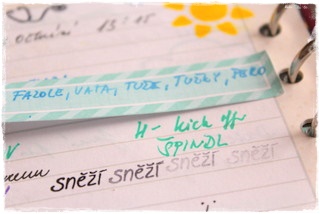 13:15
FAZOLE, VATA, TUŽE, TUŽKY, PERO
H- kick off
ŠPINDL
sněží sněží sněží sněží